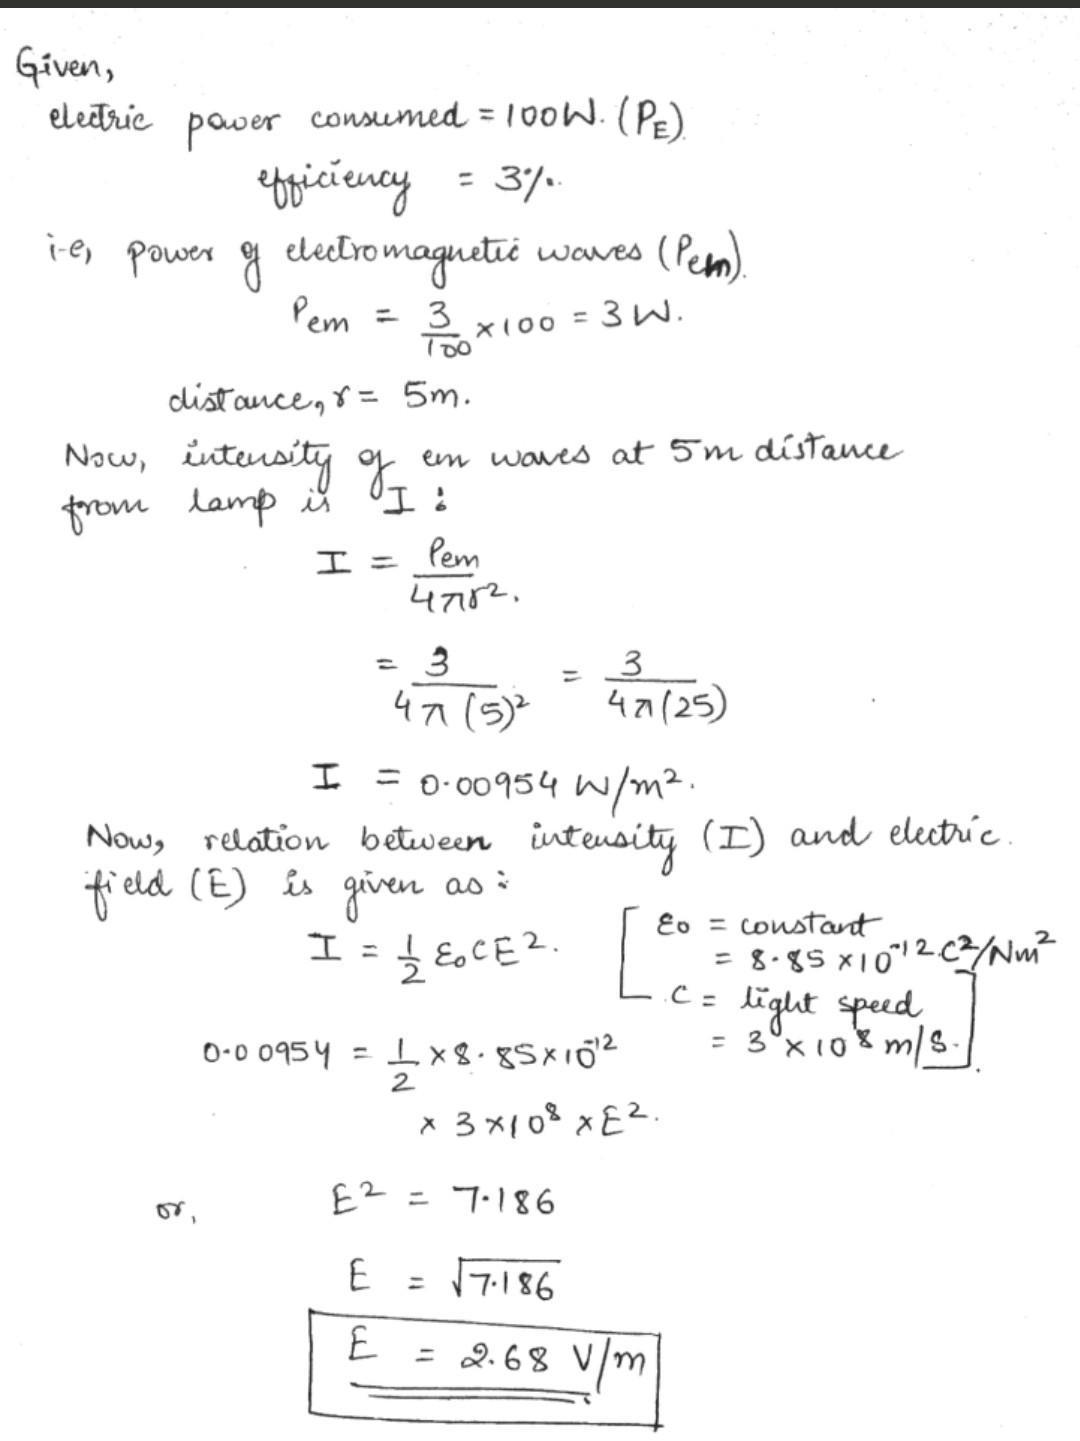 Given,
electric power consumed = 100W. (PE).
efficiency = 3%.
i-e, power of electromagnetic waves (Pem).
Pem = 3/100 × 100 = 3 W.
distance, r = 5m.
Now, intensity of em waves at 5m distance
from lamp is I :
I = Pem/4πr².
= 3/4π(5)² = 3/4π(25)
I = 0.00954 W/m².
Now, relation between intensity (I) and electric.
field (E) is given as :
I = 1/2 ε₀CE². [ ε₀ = constant
= 8.85 × 10⁻¹² C²/Nm²
C = light speed
= 3 × 10⁸ m/s. ]
0.00954 = 1/2 × 8.85 × 10⁻¹²
× 3 × 10⁸ × E².
or, E² = 7.186
E = √7.186
E = 2.68 V/m